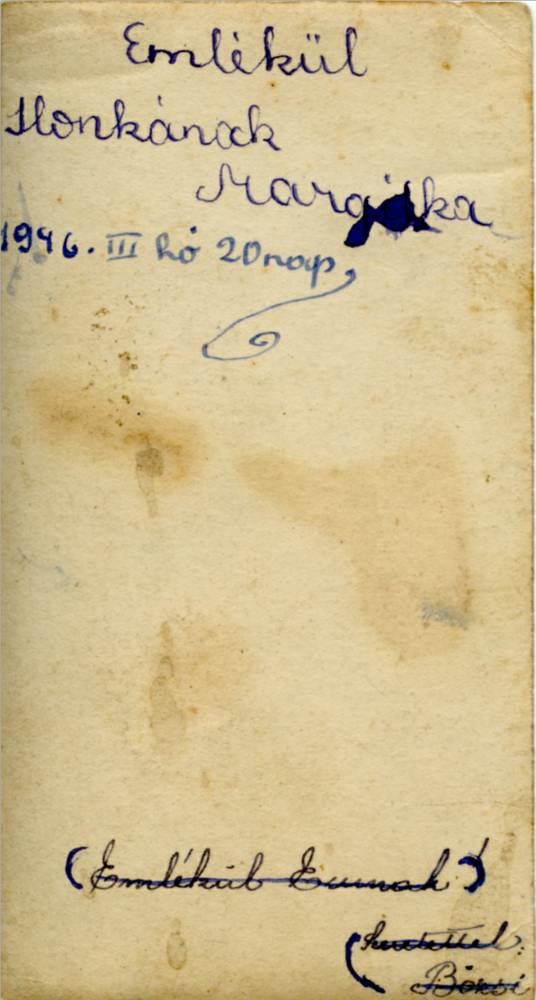 Emlékül
Ilonkának
Margitka
1946. III hó 20 nap,
(Emlékül Emmának)
(Szeretettel:
Bözsi